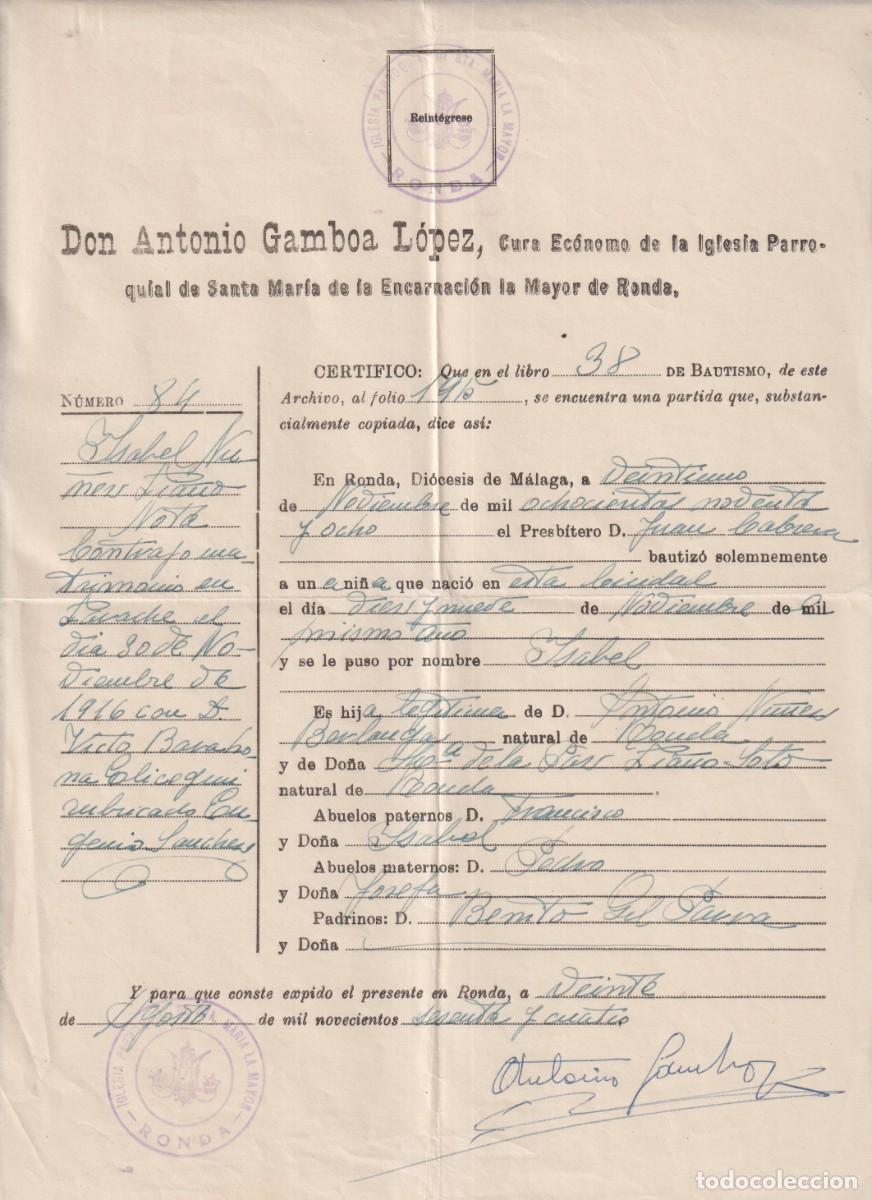 IGLESIA PARROQUIAL DE STA. MARIA LA MAYOR
RONDA
Reintégrese
Don Antonio Gamboa López, Cura Ecónomo de la Iglesia Parro-
quial de Santa María de la Encarnación la Mayor de Ronda,
NÚMERO 84
Isabel Nu-
ñez Liaño
Nota
Contrajo ma-
trimonio en
Larache el
dia 30 de No-
viembre de
1916 con D.
Victo Baraho-
na
rubricado Eu-
genio Sanchez
CERTIFICO: Que en el libro 38 DE BAUTISMO, de este
Archivo, al folio 195, se encuentra una partida que, substan-
cialmente copiada, dice así:
En Ronda, Diócesis de Málaga, a veintiuno
de Noviembre de mil ochocientos noventa
y ocho el Presbítero D. Juan Cabrera
bautizó solemnemente
a una niña que nació en esta Ciudad
el día diez y nueve de Noviembre de mil
mismo año
y se le puso por nombre Isabel
Es hija legitima de D. Antonio Nuñez
Berlanga natural de Ronda
y de Doña Mª de la Paz Liaño Soto
natural de Ronda.
Abuelos paternos D. Francisco
y Doña Isabel
Abuelos maternos: D. Pedro
y Doña Josefa
Padrinos: D. Benito Gil
y Doña
Y para que conste expido el presente en Ronda, a veinte
de Agosto de mil novecientos sesenta y cuatro
Antonio Gamboa
IGLESIA PARROQUIAL DE STA. MARIA LA MAYOR
RONDA
todocoleccion